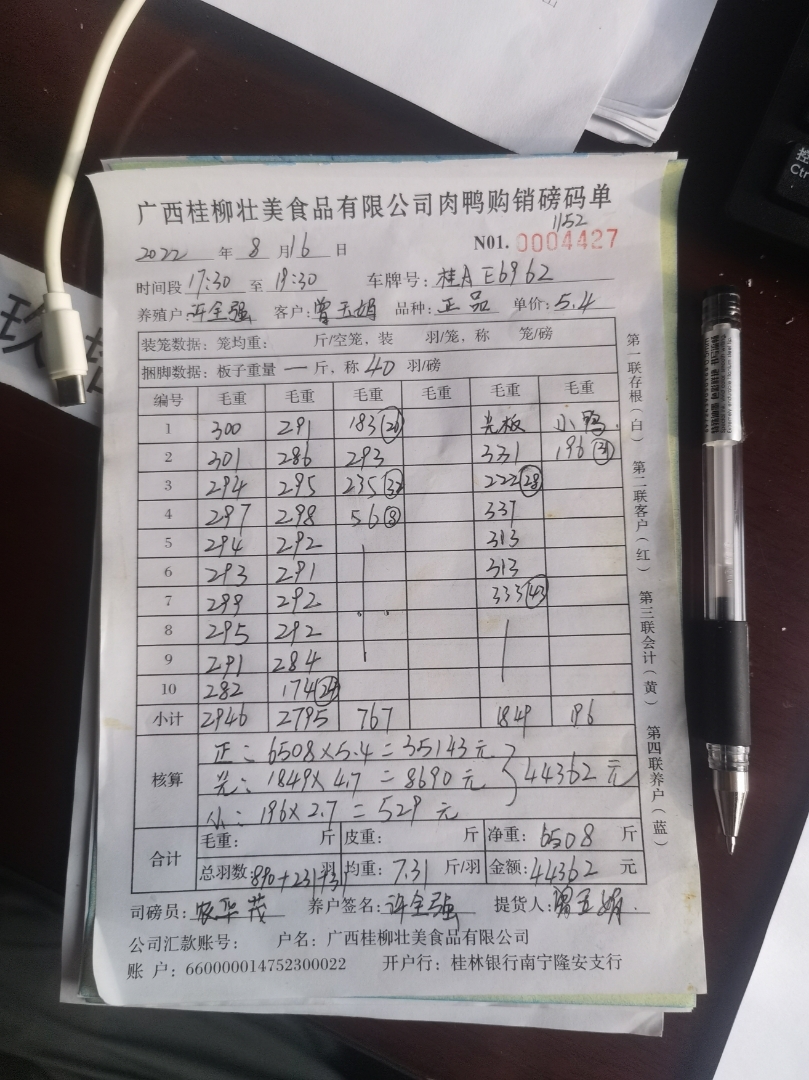 广西桂柳壮美食品有限公司肉鸭购销磅码单
1152
2022 年 8 月 16 日 N01. 0004427
时间段 17:30 至 19:30 车牌号: 桂A E6962
养殖户: 许全强 客户: 曾玉娟 品种: 正品 单价: 5.4
装笼数据: 笼均重: 斤/空笼, 装 羽/笼, 称 笼/磅
捆脚数据: 板子重量 一 斤, 称 40 羽/磅
编号 毛重 毛重 毛重 毛重 毛重 毛重
1 300 291 183 光板 小鸭
2 301 286 293 331 196
3 294 295 235 (32) 222 (28)
4 297 298 56 (8) 337
5 294 292 313
6 293 291 313
7 299 292 333 (43)
8 295 292
9 291 284
10 282 174
小计 2946 2795 767 1849 196
核算
正: 6508×5.4=35143元
光: 1849×4.7=8690元 } 44362元
小: 196×2.7=529元
合计
毛重: 斤 皮重: 斤 净重: 6508 斤
总羽数: 890+231+31 羽 均重: 7.31 斤/羽 金额: 44362 元
司磅员: 农华茂 养户签名: 许全强 提货人: 曾玉娟
公司汇款账号: 户名: 广西桂柳壮美食品有限公司
账 户: 660000014752300022 开户行: 桂林银行南宁隆安支行
第一联存根(白) 第二联客户(红) 第三联会计(黄) 第四联养户(蓝)
Ctr